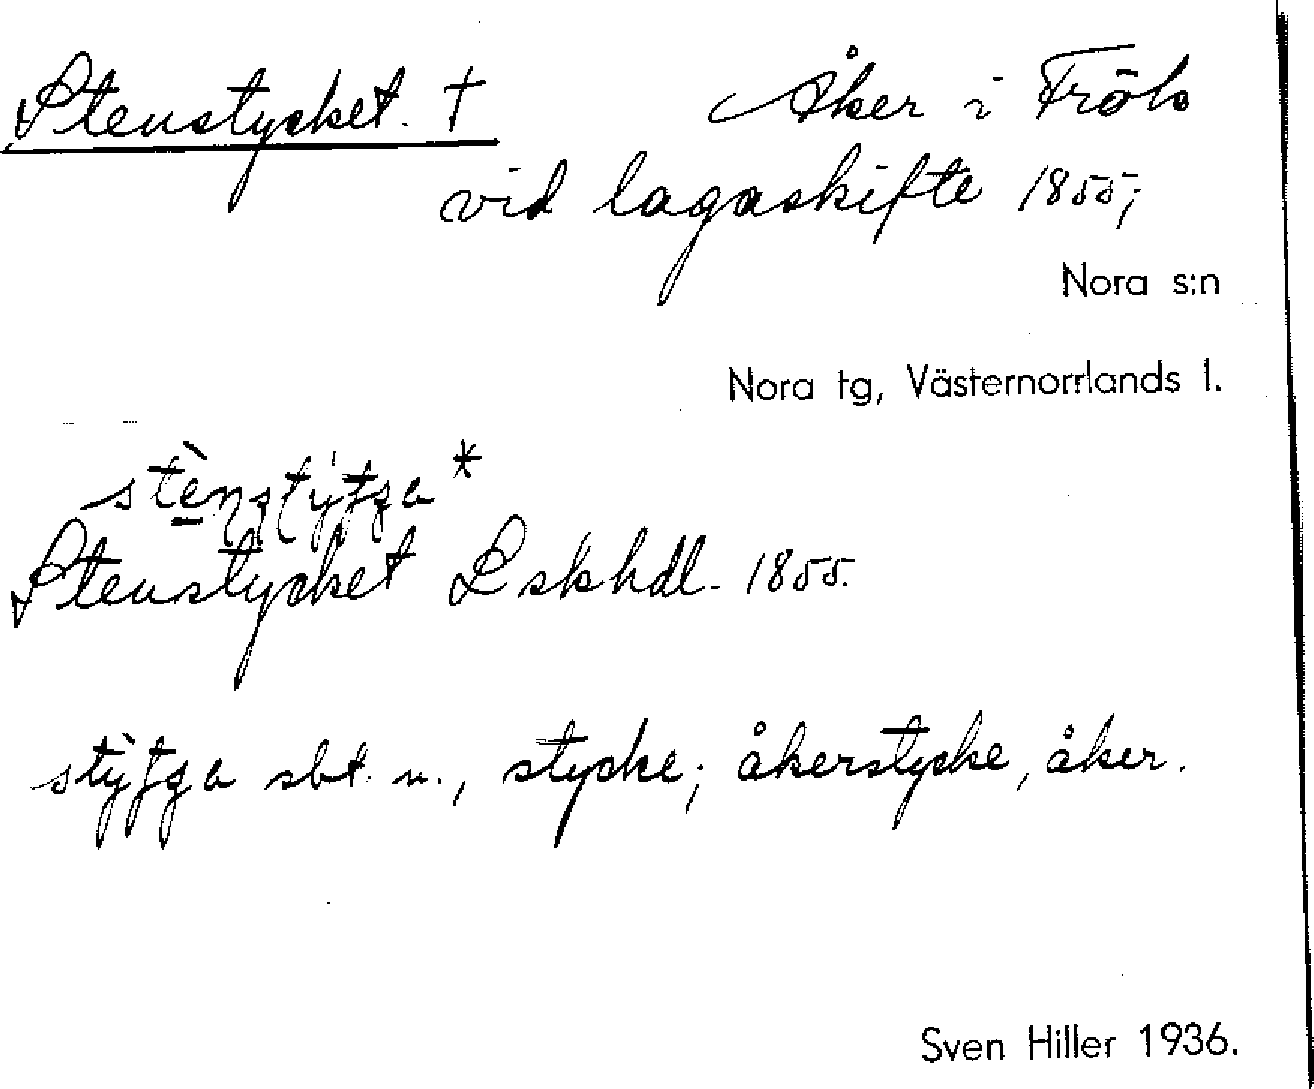 Stenstycket. † Åker i Frök
vid lagaskifte 1855;
Nora s:n
Nora tg, Västernorrlands l.
Stenstycket Lskhdl. 1855.
sbt. n., stycke; åkerstycke, åker.
Sven Hiller 1936.